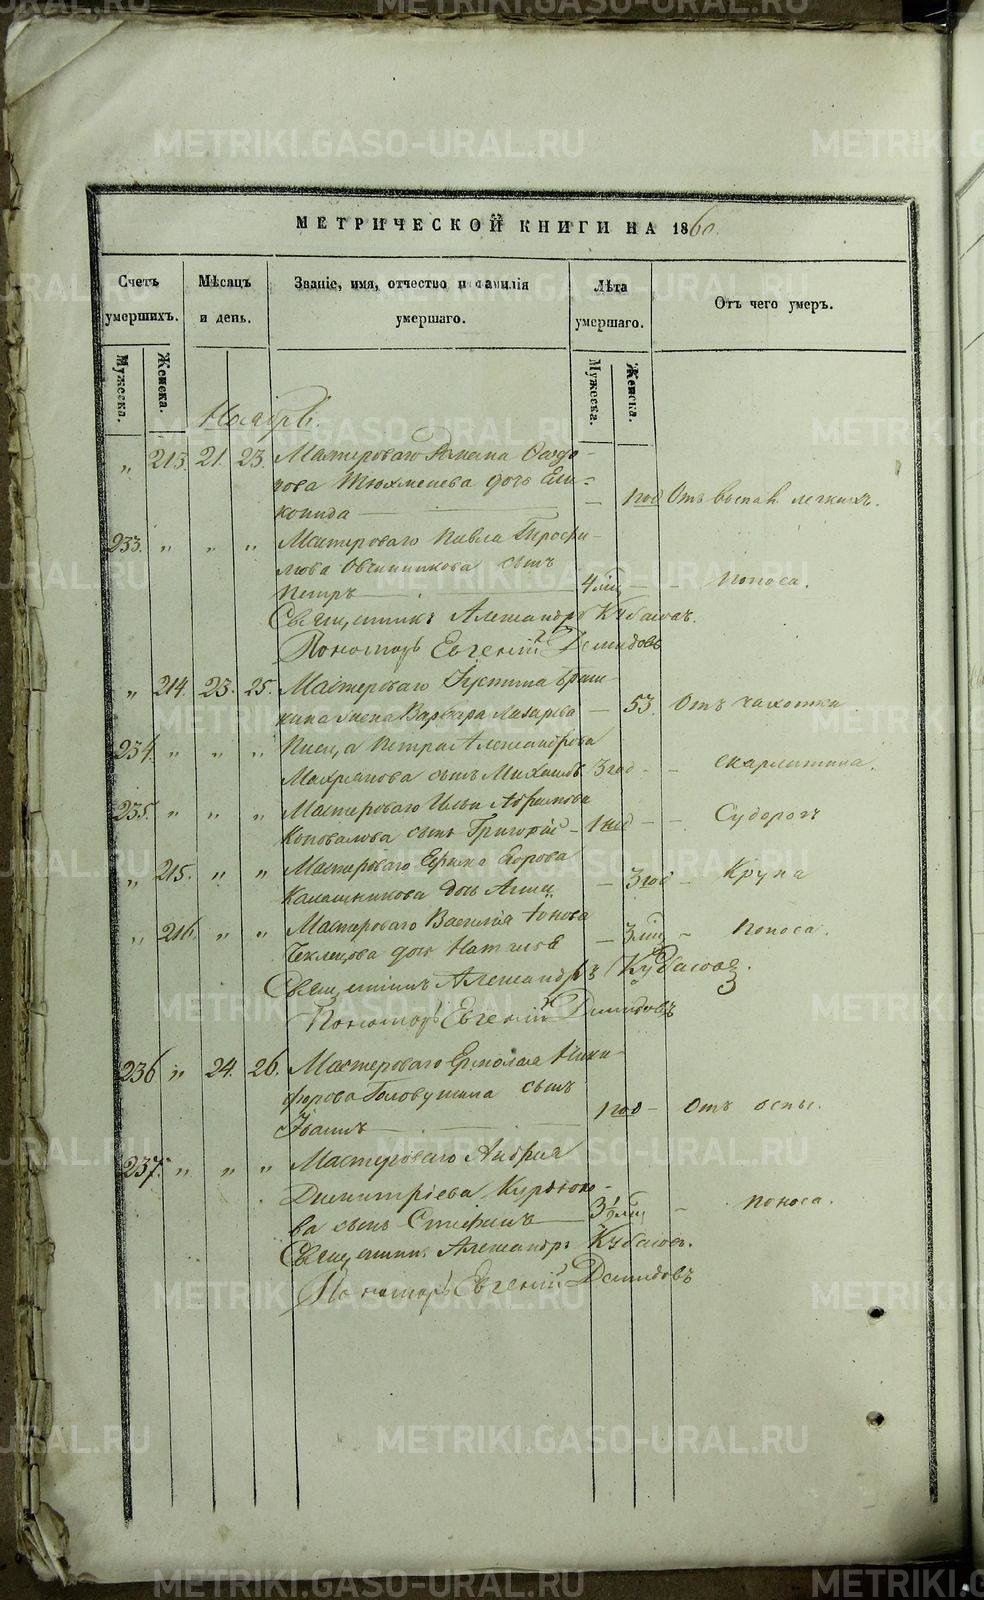 МЕТРИЧЕСКОЙ КНИГИ НА 1860.
Счетъ умершихъ.
Мѣсяцъ и день.
Званіе, имя, отчество и фамилія умершаго.
Лѣта умершаго.
Отъ чего умеръ.
Мужеска.
Женска.
Мужеска.
Женска.
Ноябрь.
„ 213. 21. 23. Мастероваго Романа Ѳедо-
това дочь Ели-
конида 1 год Отъ воспал. легкихъ.
233. „ „ „ Мастероваго Павла
Овчинникова сынъ
Петръ 4 мѣц поноса.
Священникъ Александръ Кубасовъ.
Пономарь Евгеній Демидовъ
„ 214. 23. 25. Мастероваго
жена Варвара Лазарева 53. Отъ чахотки
234. „ „ „ Писца Петра Александрова
сынъ Михаилъ 3 год скарлатина.
235. „ „ „ Мастероваго Ильи Абрамова
Коновалова сынъ Григорій 1 нед Судорогъ
„ 215. „ „ Мастероваго Ефима Егорова
Калашникова дочь Анна 3 год Крупа
„ 216. „ „ Мастероваго Василія Іонова
дочь 3 мѣц Поноса.
Священникъ Александръ Кубасовъ.
Пономарь Евгеній Демидовъ
236 „ 24. 26. Мастероваго Ермолая Ники-
форова сынъ
Іоаннъ 1 год Отъ оспы.
237. „ „ „ Мастероваго Андрея
Димитріева
ва сынъ Стефанъ 3 мѣц поноса.
Священникъ Александръ Кубасовъ.
Пономарь Евгеній Демидовъ
METRIKI.GASO-URAL.RU